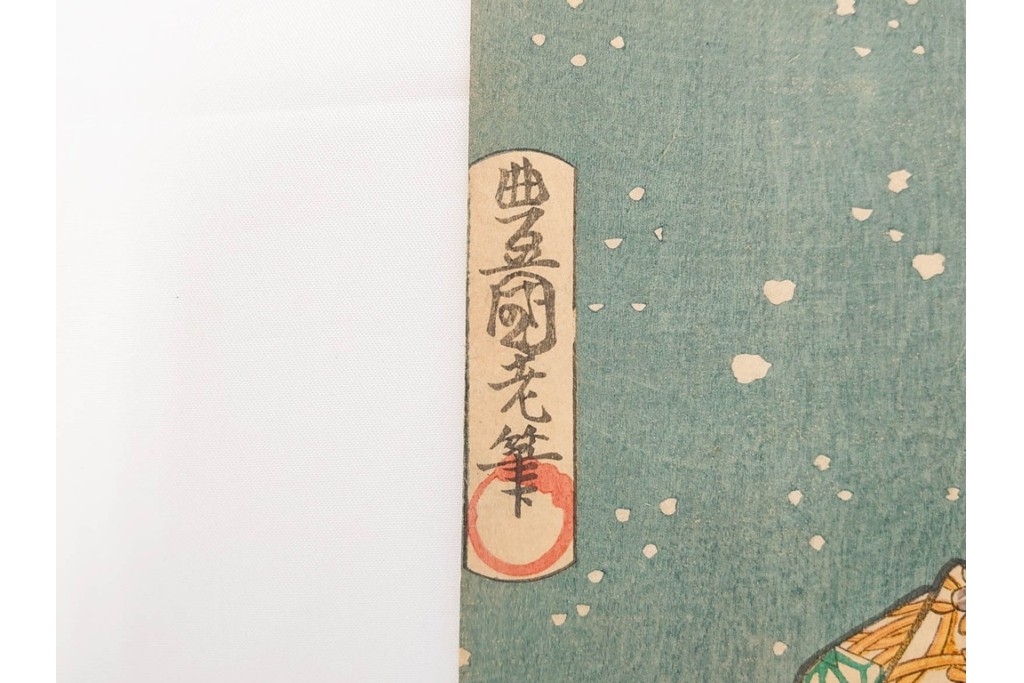 豊國老筆